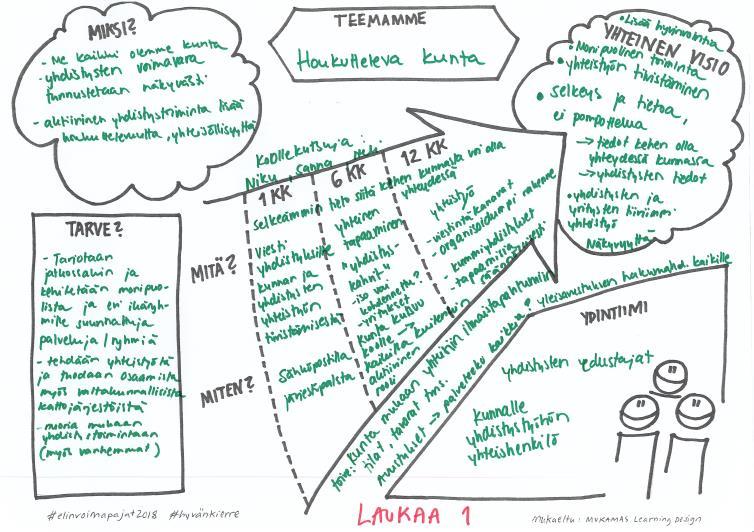 MIKSI?
- Me kaikki olemme kunta
- yhdistysten voimavara
tunnustetaan näkyvästi
- aktiivinen yhdistystoiminta lisää
houkuttelevuutta, yhteisöllisyyttä
TEEMAMME
Houkutteleva kunta
YHTEINEN VISIO
• Lisää hyvinvointia
• Monipuolinen toiminta
• yhteistyön tiivistäminen
• selkeys ja tietoa,
ei pompottelua
→ tiedot kehen olla
yhteydessä kunnassa
→ yhdistysten tiedot
• yhdistysten ja
yritysten tiiviimpi
yhteistyö
Näkyvyyttä
TARVE?
- Tarjotaan
jatkossakin ja
kehitetään monipuo-
lista ja eri ikäryh-
mille suunnattuja
palveluja / ryhmiä
- tehdään yhteistyötä
ja tuodaan osaamista
myös valtakunnallisista
kattojärjestöistä
- nuoria mukaan
yhdistystoimintaan
(myös vanhemmat)
Koollekutsuja:
Niku, Sanna
1 KK
6 KK
12 KK
MITÄ?
MITEN?
selkeämmin tieto siitä kehen kunnassa voi olla
yhteydessä
viesti
yhdistyksille
kunnan ja
yhdistysten
yhteistyön
tiivistämisestä
Sähköpostilla
järjestöpalsta
yhteinen
tapaaminen
"yhdistys-
kahvit"
- iso vai
kohdennettu?
- yritykset
kunta kutsuu
koolle →
kaikilla kuitenkin
aktiivinen
rooli
yhteistyö
- viestintäkanavat
- organisoidumpi rakenne
- kummiyhdistykset
- tapaamisia
säännöllisesti
toive: kunta mukaan yhteisiin ilmaistapahtumiin
tilat, tavarat tms.
avustukset → palveleeko kaikkia? yleisavustuksen hakumahd. kaikille
YDINTIIMI
yhdistysten edustajat
kunnalle
yhdistystyöhön
yhteishenkilö
#elinvoimapajat2018 #hyvänkierre
LAUKAA 1
Mukaeltu: MUKAMAS Learning Design